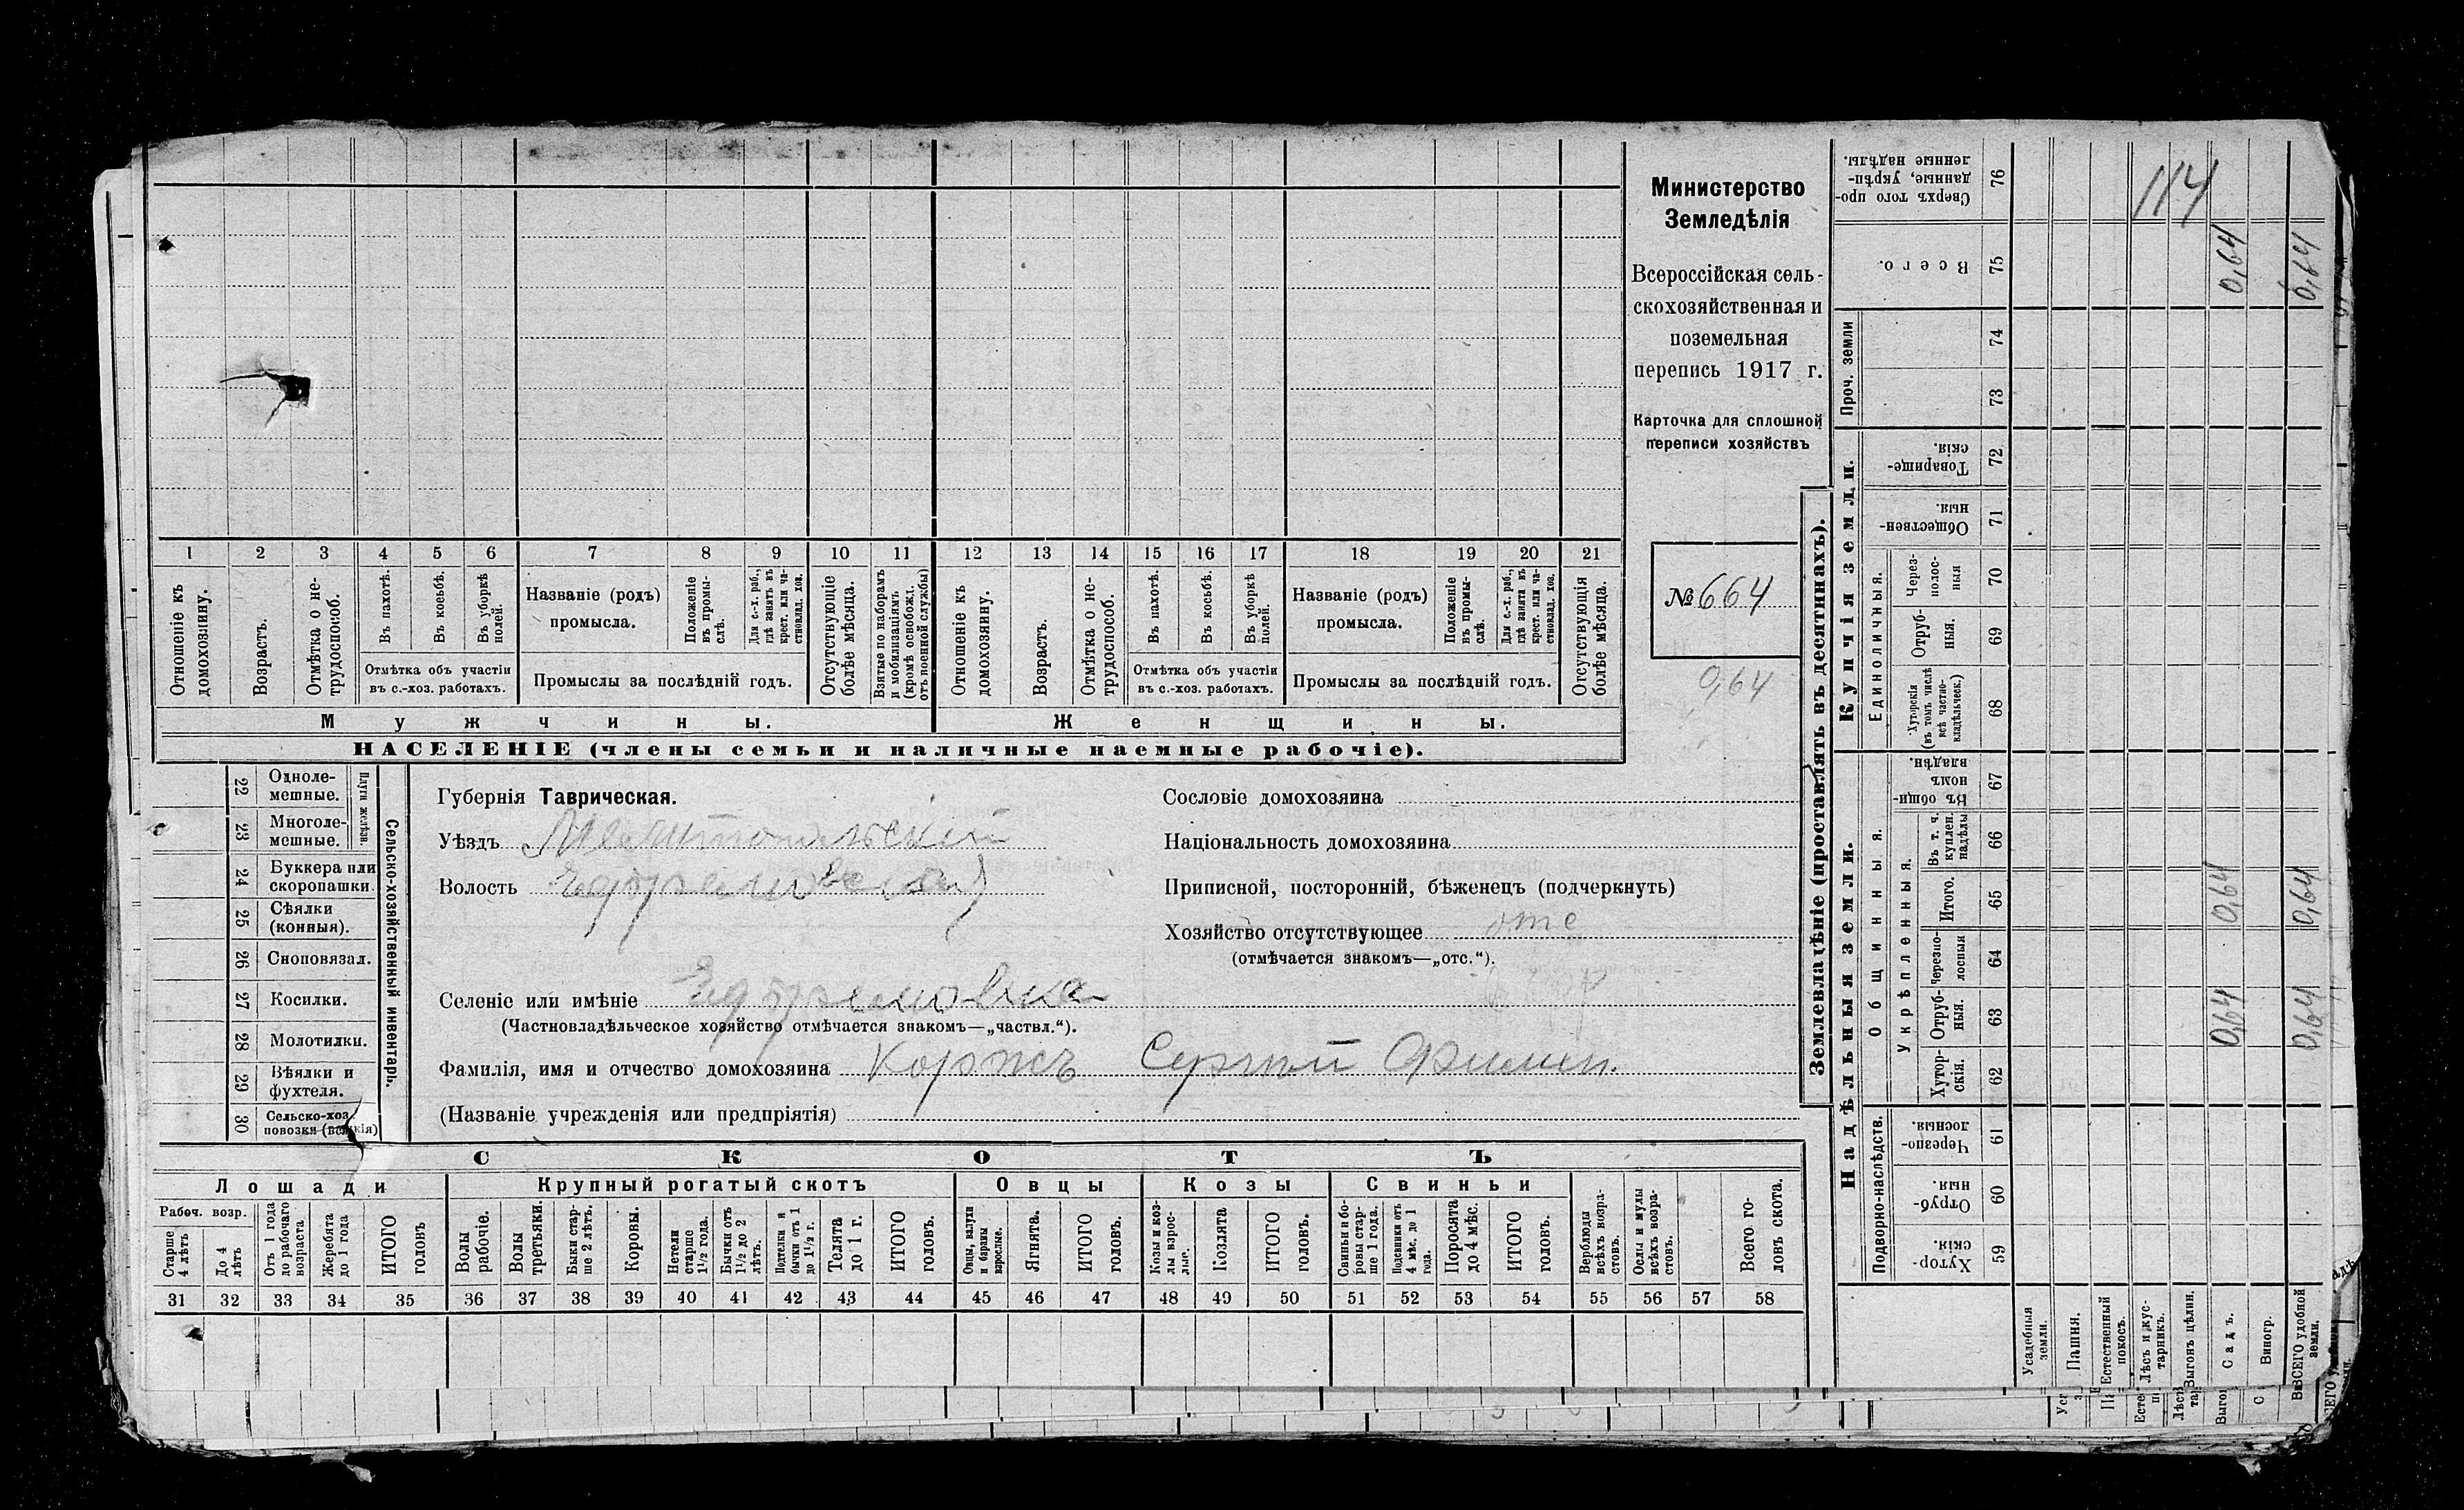 Министерство
Земледѣлія
Всероссійская сель-
скохозяйственная и
поземельная
перепись 1917 г.
Карточка для сплошной
переписи хозяйствъ
№ 664
0,64
1 2 3 4 5 6 7 8 9 10 11 12 13 14 15 16 17 18 19 20 21
Отношеніе къ домохозяину.
Возрастъ.
Отмѣтка о не-трудоспособ.
Въ пахотѣ.
Въ косьбѣ.
Въ уборкѣ полей.
Отмѣтка объ участіи
въ с.-хоз. работахъ.
Названіе (родъ)
промысла.
Положеніе въ промы-слѣ.
Для с.-х. раб., гдѣ занятъ въ крест. или ча-стновлад. хоз.
Промыслы за послѣдній годъ.
Отсутствующіе болѣе мѣсяца.
Взятые по наборамъ и мобилизаціямъ (кромѣ освобожд. отъ военной службы)
Отношеніе къ домохозяину.
Возрастъ.
Отмѣтка о не-трудоспособ.
Въ пахотѣ.
Въ косьбѣ.
Въ уборкѣ полей.
Отмѣтка объ участіи
въ с.-хоз. работахъ.
Названіе (родъ)
промысла.
Положеніе въ промы-слѣ.
Для с.-х. раб., гдѣ занята въ крест. или ча-стновлад. хоз.
Промыслы за послѣдній годъ.
Отсутствующія болѣе мѣсяца.
Мужчины.
Женщины.
НАСЕЛЕНІЕ (члены семьи и наличные наемные рабочіе).
22 Одноле-мешные.
23 Многоле-мешные.
Плуги желѣзн.
24 Буккера или скоропашки.
25 Сѣялки (конныя).
26 Сноповязал.
27 Косилки.
28 Молотилки.
29 Вѣялки и фухтеля.
30 Сельско-хоз. повозки (всякія)
Сельско-хозяйственный инвентарь.
Губернія Таврическая.
Уѣздъ Мелитопольскій
Волость Ефремовская
Селеніе или имѣніе Ефремовка
(Частновладѣльческое хозяйство отмѣчается знакомъ—„частвл.“).
Фамилія, имя и отчество домохозяина Коржъ Сергѣй Филип.
(Названіе учрежденія или предпріятія)
Сословіе домохозяина
Національность домохозяина
Приписной, посторонній, бѣженецъ (подчеркнуть)
Хозяйство отсутствующее отс
(отмѣчается знакомъ—„отс.“).
СКОТЪ
Лошади
Крупный рогатый скотъ
Овцы
Козы
Свиньи
Рабоч. возр.
Старше 4 лѣтъ
До 4 лѣтъ
Отъ 1 года до рабочаго возраста
Жеребята до 1 года
ИТОГО головъ
Волы рабочіе.
Волы третьяки.
Быки стар-ше 2 лѣтъ.
Коровы.
Нетели старше 1½ года.
Бычки отъ 1½ до 2 лѣтъ.
Подтелки и бычки отъ 1 до 1½ г.
Телята до 1 г.
ИТОГО головъ.
Овцы, валухи и бараны взрослые.
Ягнята.
ИТОГО головъ.
Козы и коз-лы взрос-лые.
Козлята
ИТОГО головъ.
Свиньи и бо-ровы стар-ше 1 года.
Подсвинки отъ 4 мѣс. до 1 года.
Поросята до 4 мѣс.
ИТОГО головъ.
Верблюды всѣхъ возра-стовъ.
Ослы и мулы всѣхъ возра-стовъ.
Всего го-ловъ скота.
31 32 33 34 35 36 37 38 39 40 41 42 43 44 45 46 47 48 49 50 51 52 53 54 55 56 57 58
Землевладѣніе (проставлять въ десятинахъ).
Сверхъ того про-данные, укрѣп-ленные надѣлы. 76
114
Всего. 75 0,64 0,64
Проч. земли 74 73
Купчія земли.
Товарище-скія. 72
Обществен-ныя. 71
Единоличныя.
Через-полос-ныя 70
Отруб-ныя. 69
Хуторскія (въ томъ числѣ всѣ частно-владѣльческ.) 68
Надѣльныя земли.
Общинныя.
Въ общин-номъ владѣн. 67
Укрѣпленныя.
Въ т. ч. куплен. надѣлы 66
Итого. 65 0,64 0,64
Черезпо-лосныя 64
Отруб-ныя. 63 0,64 0,64
Хутор-скія. 62
Подворно-наслѣдств.
Черезпо-лосныя. 61
Отруб-ныя. 60
Хутор-скія. 59
Усадебныя земли.
Пашня.
Естественный покосъ.
Лѣсъ и кус-тарникъ.
Выгонъ цѣлин.
Садъ.
Виногр.
ВСЕГО удобной земли.